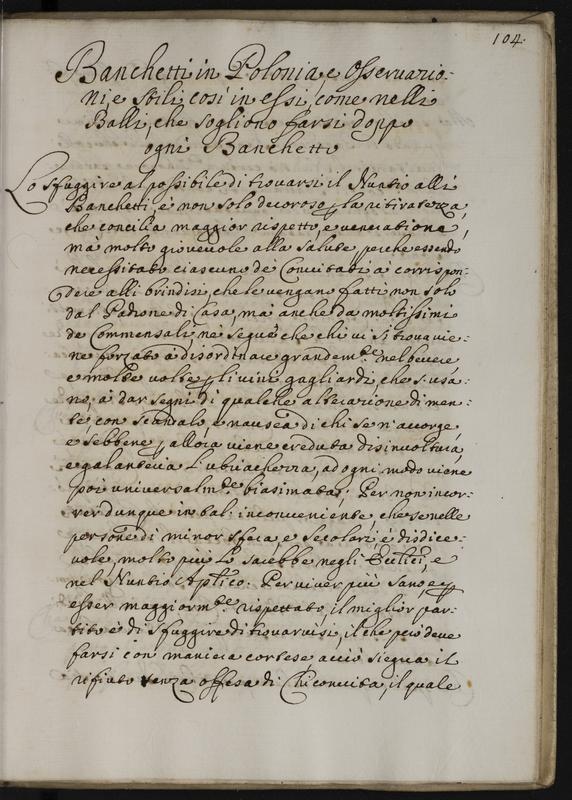 104.
Banchetti in Polonia, e Osservazio:
ni, e Stili così in essi, come nelli
Balli, che sogliono farsi doppo
ogni Banchetto
Lo sfuggire al possibile di trovarsi il Nuntio alli
Banchetti, è non solo decoroso p la ritiratezza,
che concilia maggior rispetto, e veneratione,
mà molto giovevole alla salute, perche essendo
necessitato ciascuno de Convitati à corrispon:
dere alli brindisi, che le vengano fatti non solo
dal Padrone di Casa, mà anche da moltissimi
de Commensali, ne segue che chi vi si trova vie:
ne forzato à disordinare grandem.te nel bevere
e molte volte p li vini gagliardi, che s'usa:
no, à dar segni di qualche alterazione di men:
te, con scandalo, e nausea di chi se n'accorge,
e sebbene p allora viene creduta disinvoltura,
e galanteria l'ubriachezza, ad ogni modo viene
poi universalm.te biasimata; Per non incor:
rer dunque in tal inconveniente che se nelle
persone di minor sfera, e Secolari, è disdice:
vole, molto più lo sarebbe negli Ecclici, e
nel Nuntio Aplico: Per viver più sano, e p
esser maggiorm.te rispettato, il miglior par:
tito è di sfuggire di trovarvisi, il che però deve
farsi con maniera cortese acciò siegua il
rifiuto senza offesa di Chi convita, il quale